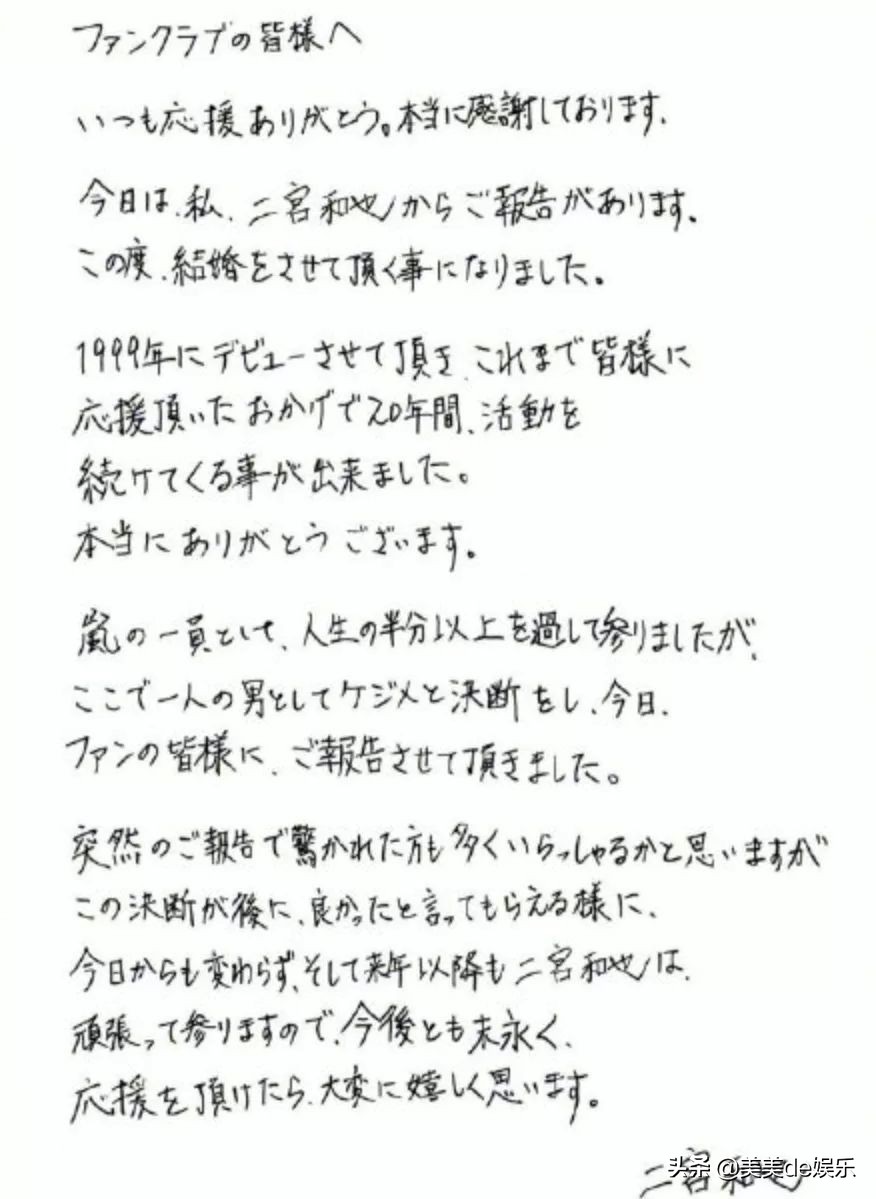 ファンクラブの皆様へ
いつも応援ありがとう。本当に感謝しております。
今日は、私、二宮和也からご報告があります。
この度、結婚をさせて頂く事になりました。
1999年にデビューさせて頂き、これまで皆様に
応援頂いたおかげで20年間、活動を
続けてくる事が出来ました。
本当にありがとうございます。
嵐の一員として、人生の半分以上を過して参りましたが、
ここで一人の男としてケジメと決断をし、今日、
ファンの皆様に、ご報告させて頂きました。
突然のご報告で驚かれた方も多くいらっしゃるかと思いますが
この決断が後に、良かったと言ってもらえる様に、
今日からも変わらず、そして来年以降も二宮和也は、
頑張って参りますので、今後とも末永く、
応援を頂けたら、大変に嬉しく思います。
二宮和也
头条 @美美de娱乐